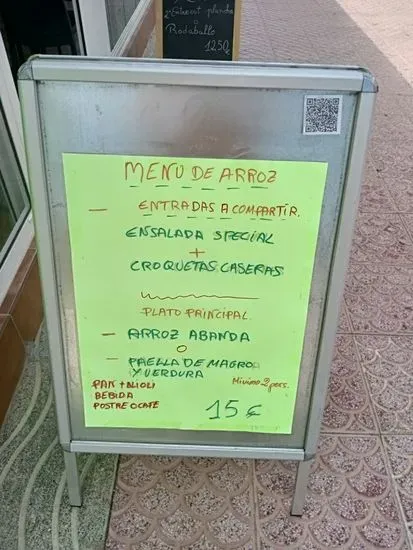 2º Entrecot plancha
o
Rodaballo
12'50€
MENU DE ARROZ
— ENTRADAS A COMPARTIR.
ENSALADA SPECIAL
+
CROQUETAS CASERAS
PLATO PRINCIPAL
- ARROZ ABANDA
O
- PAELLA DE MAGRO
Y VERDURA
PAN + ALIOLI
BEBIDA
POSTRE O CAFE
Minimo 2 pers.
15€